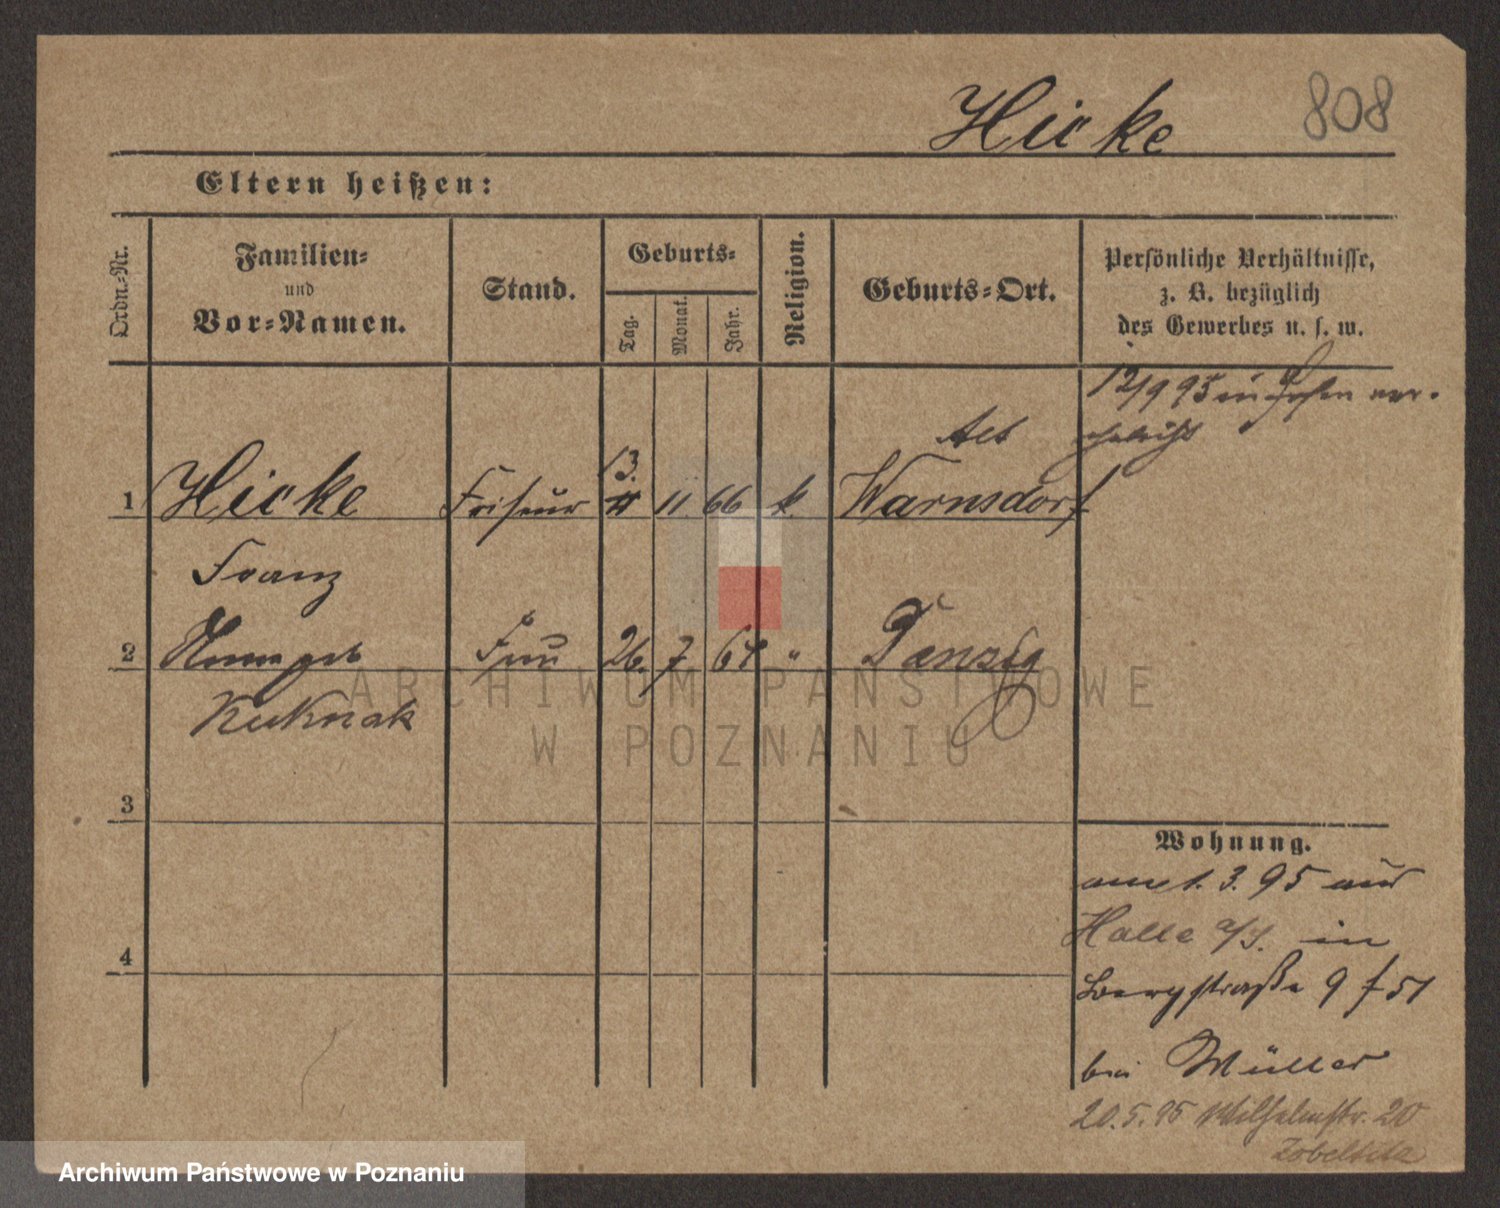 Hicke 808
Eltern heißen:
Ordn.-Nr.
Familien-
und
Vor-Namen.
Stand.
Geburts-
Tag.
Monat.
Jahr.
Religion.
Geburts-Ort.
Persönliche Verhältnisse,
z. B. bezüglich
des Gewerbes u. s. w.
12/9 95 in Posen ver-
ehelicht
Alt
13.
1 Hicke Friseur 11 11 66 k. Warnsdorf
Franz
2 geb Frau 26. 7 " Danzig
Kuknak
ARCHIWUM PAŃSTWOWE
W POZNANIU
3
Wohnung.
1. 3. 95 aus
Halle a/S. in
4
Bergstraße 9
bei Müller
20.5.95 Wilhelmstr. 20
Archiwum Państwowe w Poznaniu